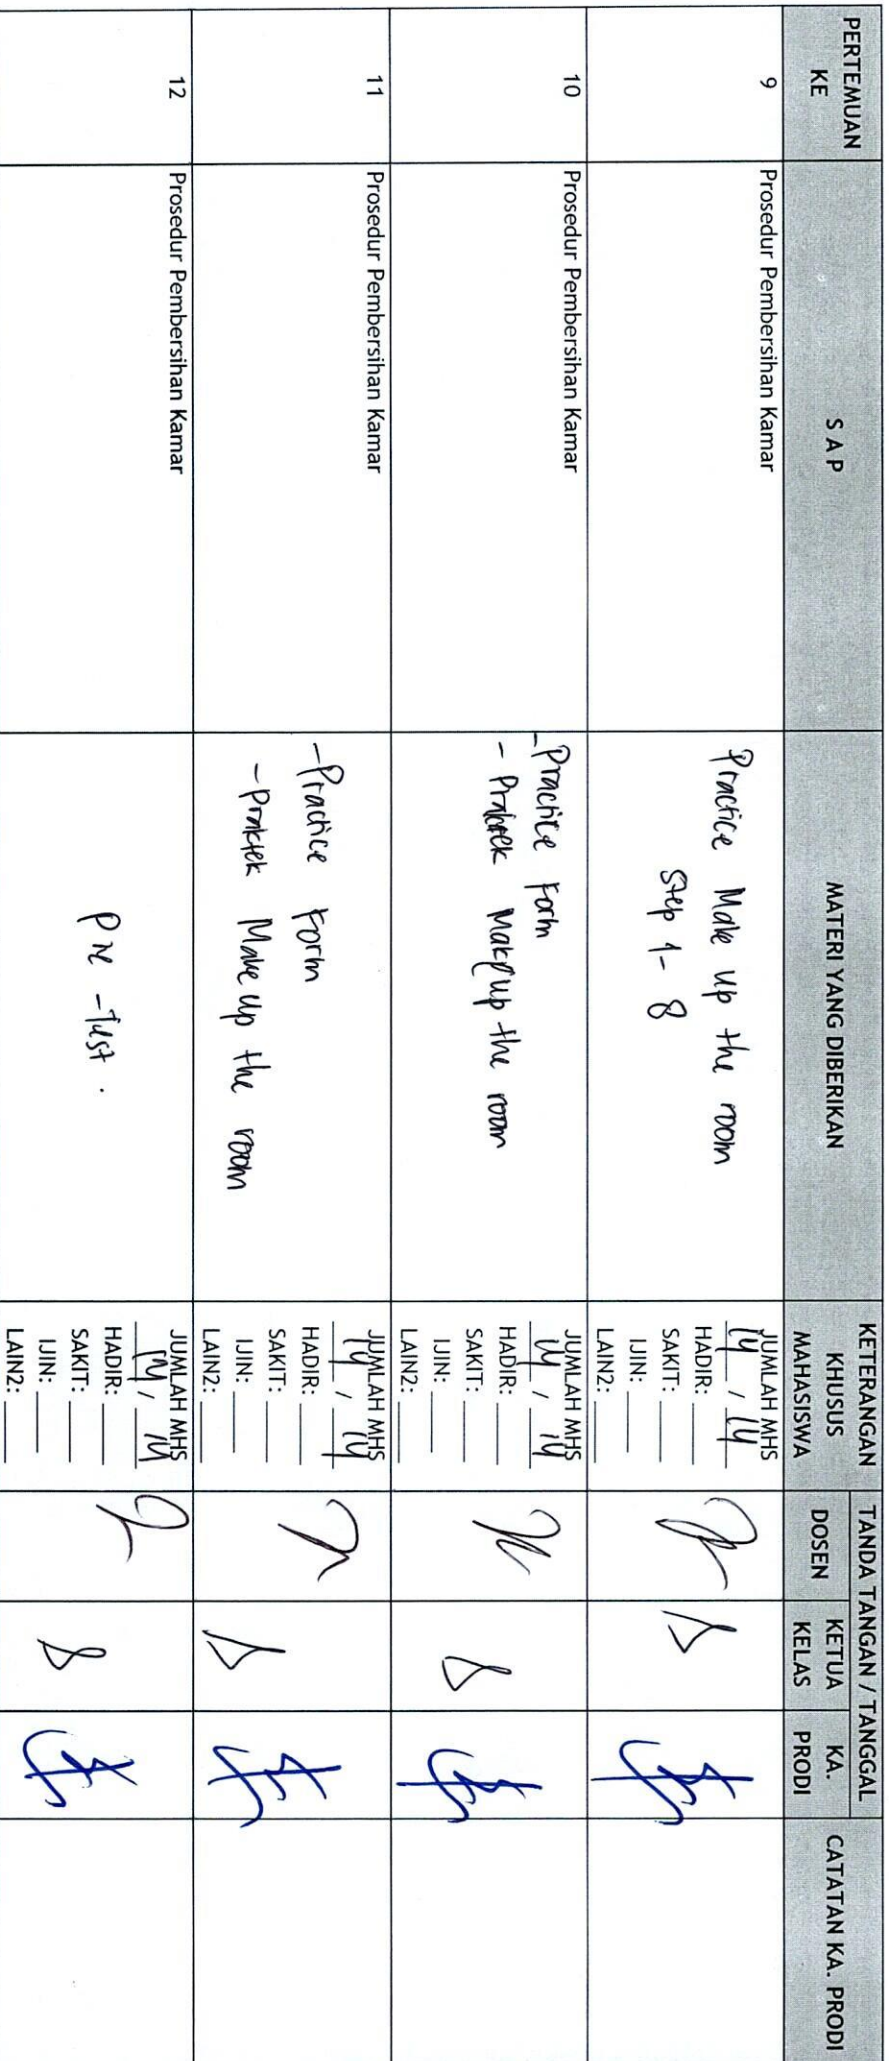 PERTEMUAN KE
S A P
MATERI YANG DIBERIKAN
KETERANGAN KHUSUS MAHASISWA
TANDA TANGAN / TANGGAL
DOSEN
KETUA KELAS
KA. PRODI
CATATAN KA. PRODI
9
Prosedur Pembersihan Kamar
Practice Make up the room
Step 1 - 8
JUMLAH MHS
14 / 14
HADIR:
SAKIT:
IJIN:
LAIN2:
10
Prosedur Pembersihan Kamar
- Practice Form
- Praktek Make up the room
JUMLAH MHS
14 / 14
HADIR:
SAKIT:
IJIN:
LAIN2:
11
Prosedur Pembersihan Kamar
- Practice Form
- Praktek Make up the room
JUMLAH MHS
14 / 14
HADIR:
SAKIT:
IJIN:
LAIN2:
12
Prosedur Pembersihan Kamar
Pre - Test .
JUMLAH MHS
14 / 14
HADIR:
SAKIT:
IJIN:
LAIN2: